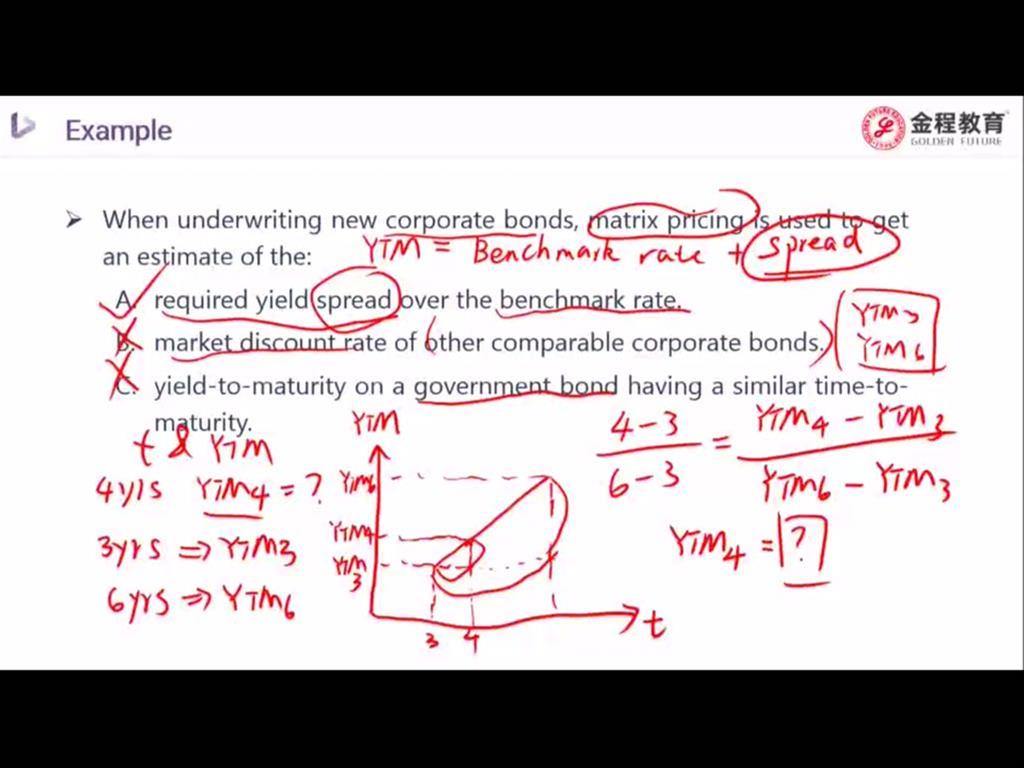 Example
金程教育
GOLDEN FUTURE
➢ When underwriting new corporate bonds, matrix pricing is used to get
an estimate of the:
YTM = Benchmark rate + spread
A. required yield spread over the benchmark rate.
B. market discount rate of other comparable corporate bonds.
YTM3
YTM6
C. yield-to-maturity on a government bond having a similar time-to-
maturity.
t & YTM
4yrs YTM4 = ?
3yrs ⇒ YTM3
6yrs ⇒ YTM6
YTM
YTM6
YTM4
YTM
3
3 4
t
4-3 = YTM4 - YTM3
6-3 YTM6 - YTM3
YTM4 = ?